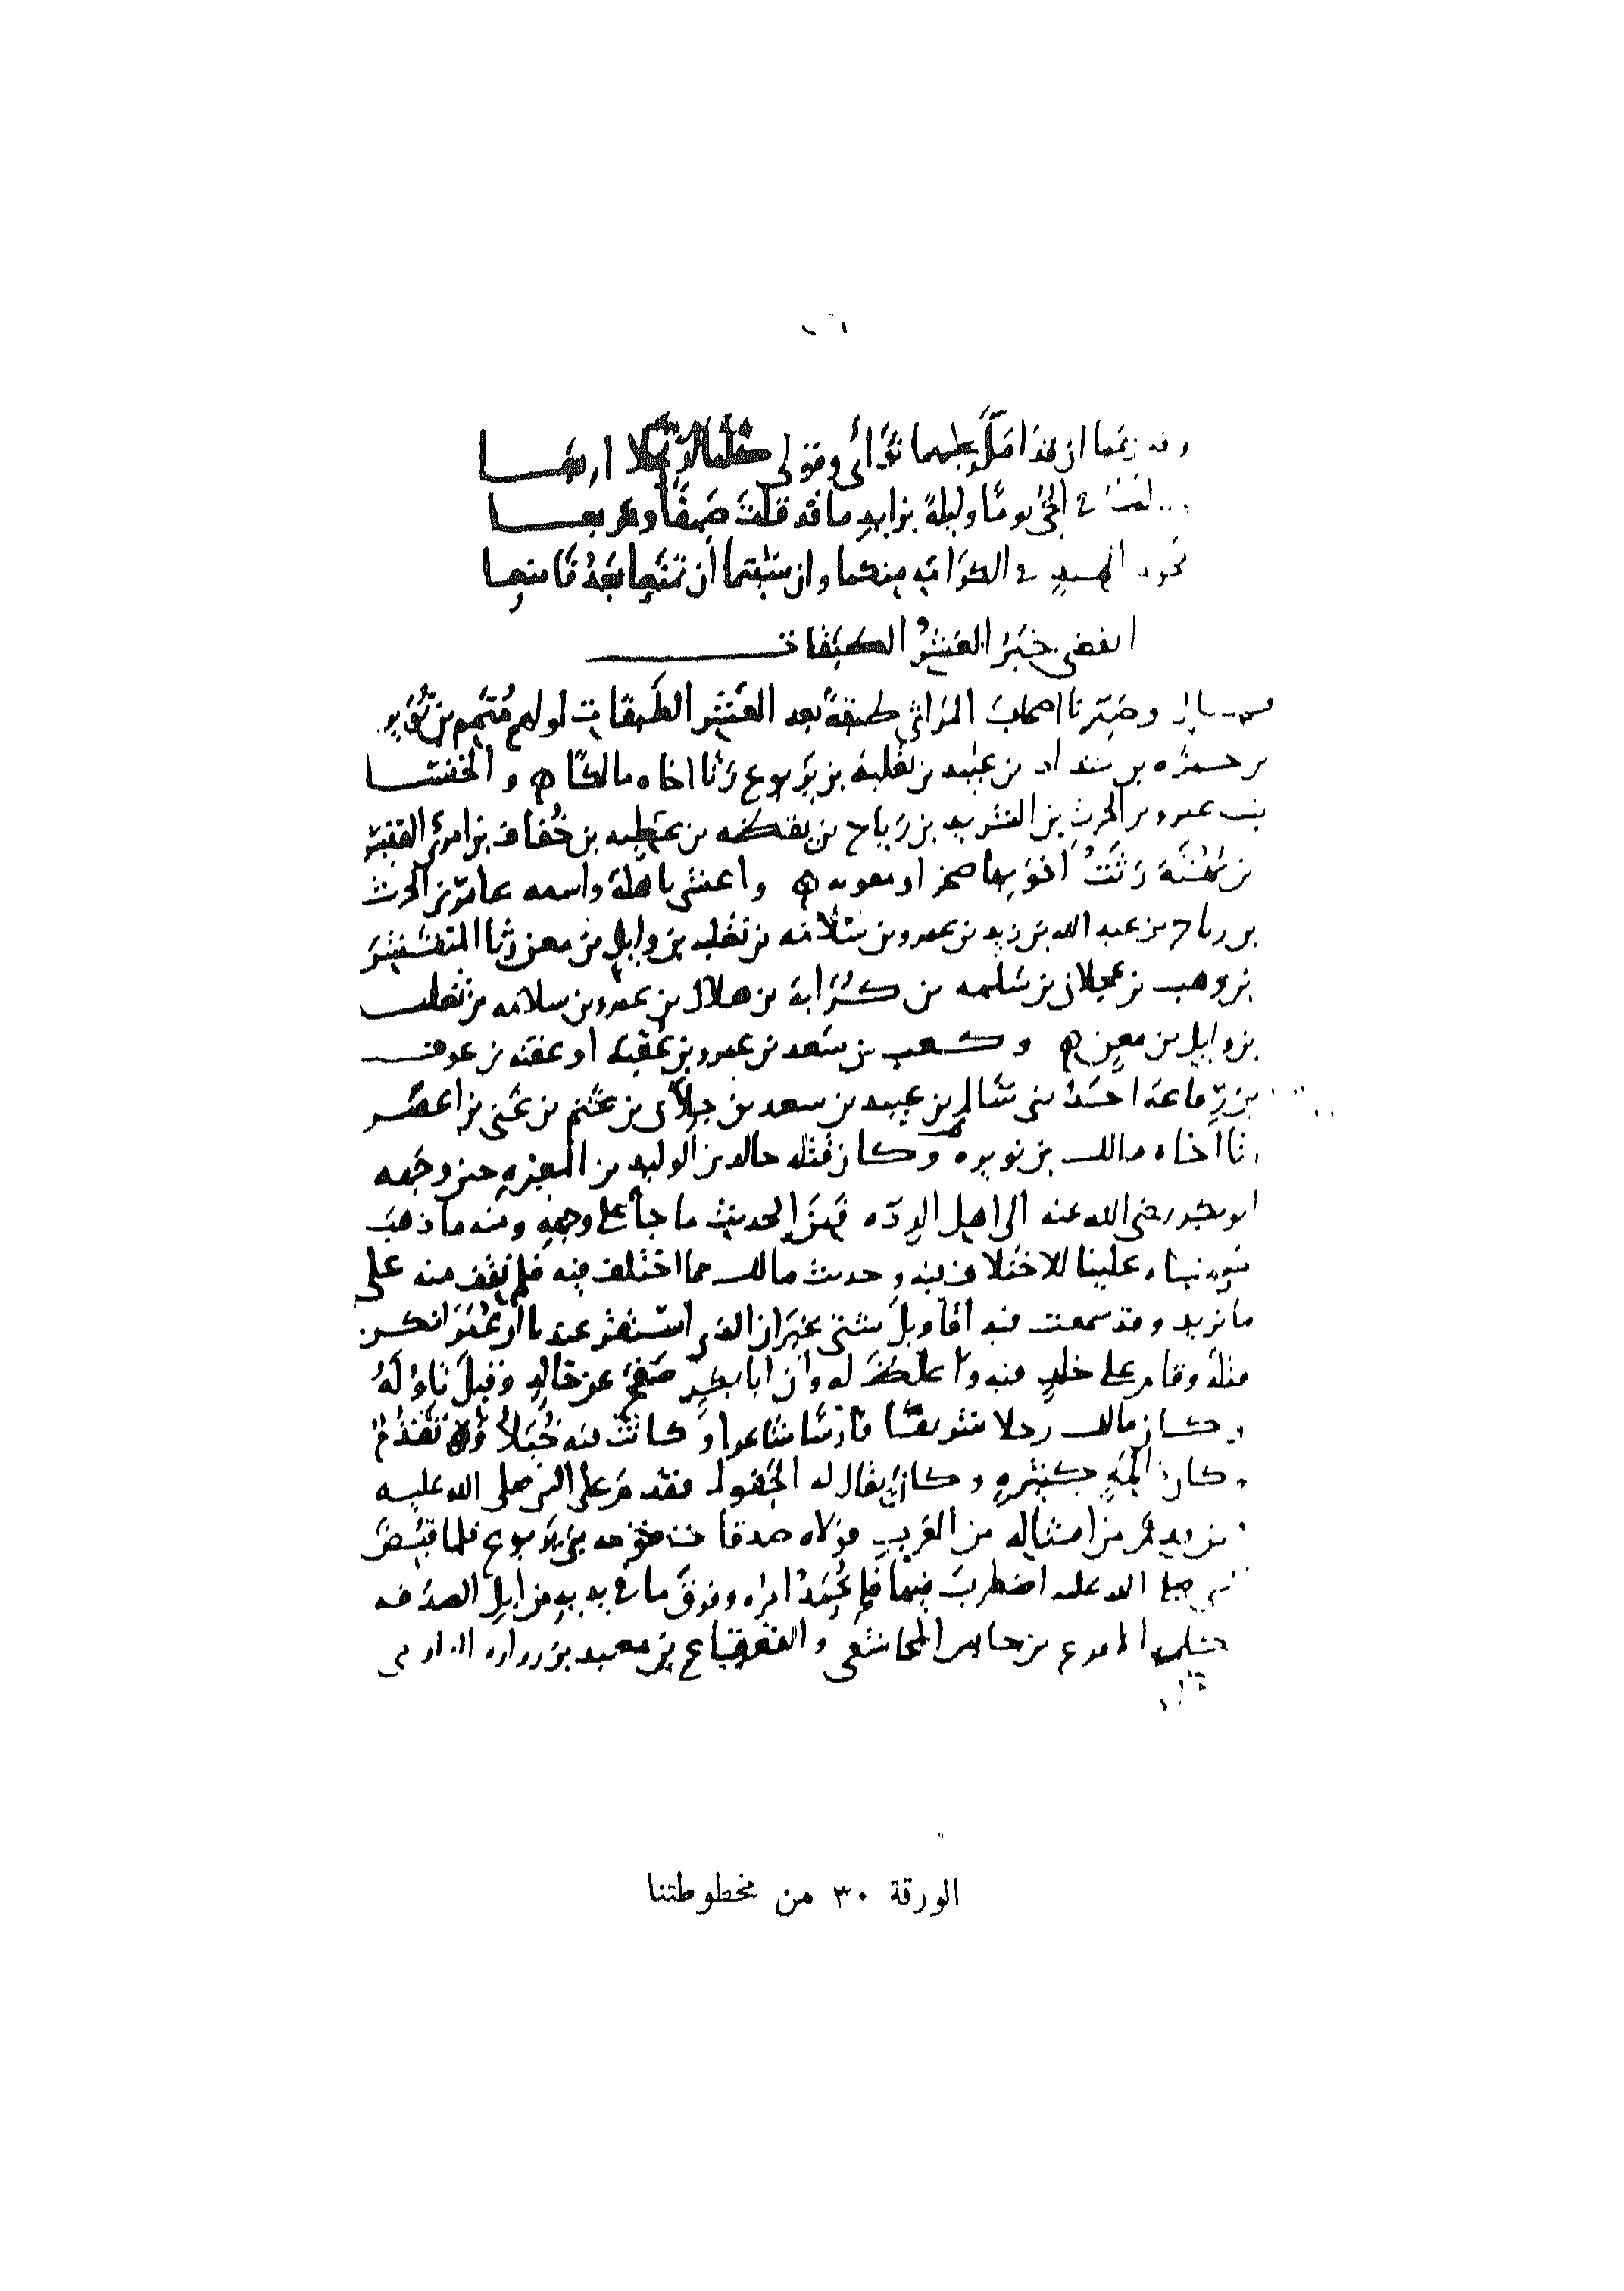 وقد زعما ان قد امل عليهما ثوائى وقولى كلما
فى الحى يوما وليلة بزابد ما قد قلت صيفا ومربعا
فى الكرامه منكما وان شئتما أن تمنعا بعد فامنعا
انقضى خبر العشر الطبقات
وصيرنا اصحاب المراثى طبقة بعد العشر الطبقات اولهم متمم بن نويره
بن شداد بن عبيد بن ثعلبة بن يربوع رثا اخاه مالكا والخنسا
بنت عمرو بن الحرث بن الشريد بن رياح بن يقظه بن عصيه بن خفاف بن امرئ القيس
بن بهثة رثت اخويها صخرا ومعويه واعشى باهلة واسمه عامر بن الحرث
بن رياح بن عبد الله بن زيد بن عمرو بن سلامه بن ثعلبه بن وايل بن معن رثا المنتشر
بن وهب بن عجلان بن سلمه بن كراثة بن هلال بن عمرو بن سلامه بن ثعلبه
بن وايل بن معن وكعب بن سعد بن عمرو بن عقبه او علقمه بن عوف
بن رفاعة احد بنى سالم بن عبيد بن سعد بن جلان بن غنم بن غنى بن اعصر
اخاه مالك بن نويره وكان قتله خالد بن الوليد بن المغيره حين وجهه
ابو بكر رضى الله عنه الى اهل الرده فمن الحديث ما جأ على وجهه ومنه ما ذهب
علينا للاختلاف فيه وحديث مالك مما اختلف فيه فلم نقف منه على
ما نريد وقد سمعت فيه اقاويل شتى غير ان الذى استقر عندنا ان عمر انكر
قتله وقام على خالد فيه واغلظ له وان ابا بكر صفح عن خالد وقبل تاوله
وكان مالك رجلا شريفا فارسا شاعرا وكانت فيه خيلا وتقدم
وكان ذا لمة كبيره وكان يقال له الجفول فقدم على النبى صلى الله عليه
من امثاله من العرب فولاه صدقات قومه بنى يربوع فلما قبض
صلى الله عليه اضطرب فيها فلم يحمد امره وفرق ما فى يديه من ابل الصدقه
الاقرع بن حابس المجاشعى والقعقاع بن معبد بن زراره الدارمى
الورقة ٣٠ من مخطوطتنا